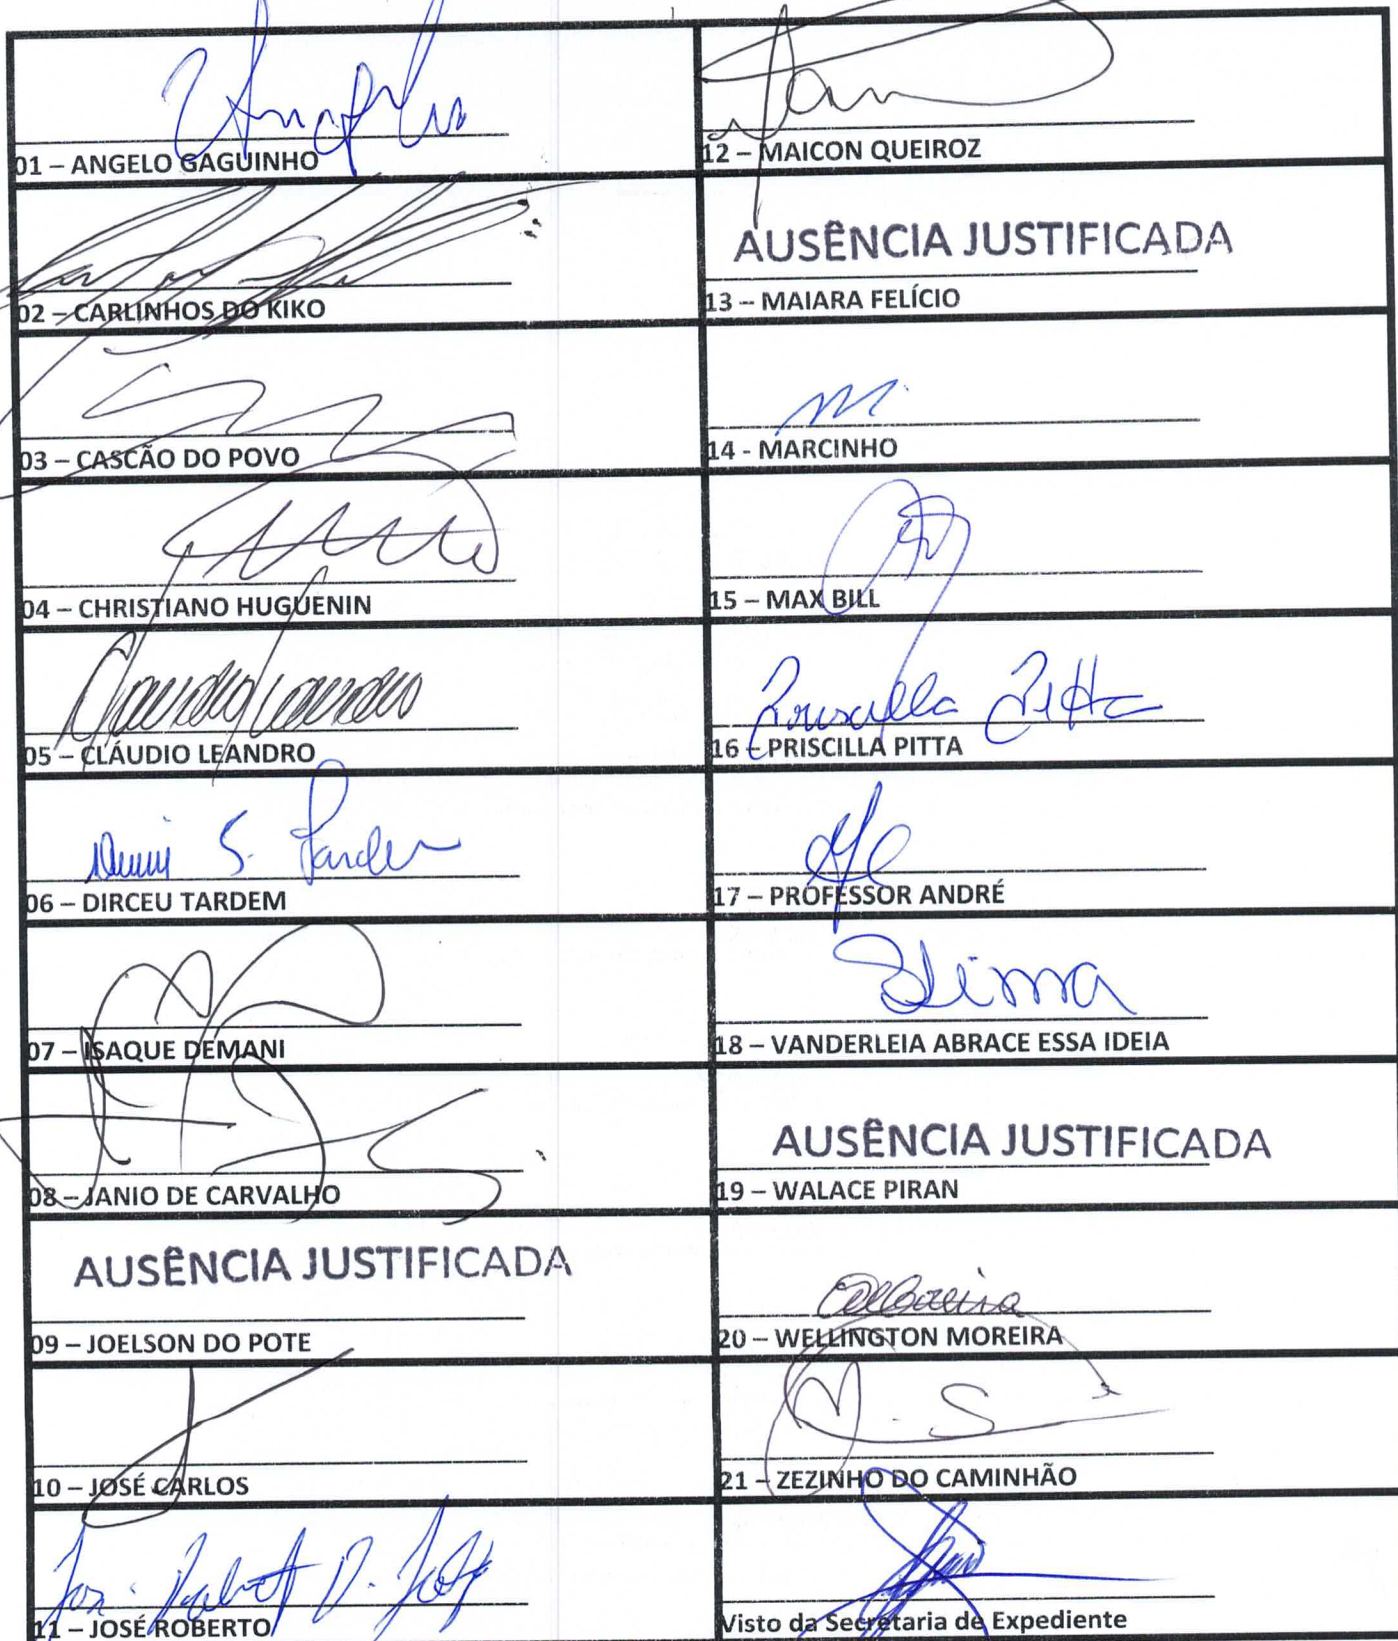 01 – ANGELO GAGUINHO
02 – CARLINHOS DO KIKO
03 – CASCÃO DO POVO
04 – CHRISTIANO HUGUENIN
Claudio Leandro
05 – CLÁUDIO LEANDRO
06 – DIRCEU TARDEM
07 – ISAQUE DEMANI
08 – JANIO DE CARVALHO
AUSÊNCIA JUSTIFICADA
09 – JOELSON DO POTE
10 – JOSÉ CARLOS
11 – JOSÉ ROBERTO
12 – MAICON QUEIROZ
AUSÊNCIA JUSTIFICADA
13 – MAIARA FELÍCIO
14 - MARCINHO
15 – MAX BILL
Priscilla Pitta
16 – PRISCILLA PITTA
17 – PROFESSOR ANDRÉ
18 – VANDERLEIA ABRACE ESSA IDEIA
AUSÊNCIA JUSTIFICADA
19 – WALACE PIRAN
20 – WELLINGTON MOREIRA
21 – ZEZINHO DO CAMINHÃO
Visto da Secretaria de Expediente